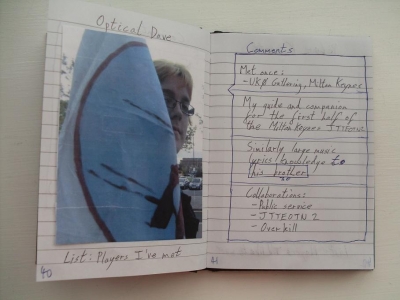 Optical Dave
List: Players I've met
40
Comments
Met once:
- UKØ Gathering, Milton Keynes
My guide and companion
for the first half of
the Milton Keynes JTTEOTN
Similarly large music
lyrics knowledge to
his brother
Collaborations:
- Public service
- JTTEOTN 2
- Overkill
41